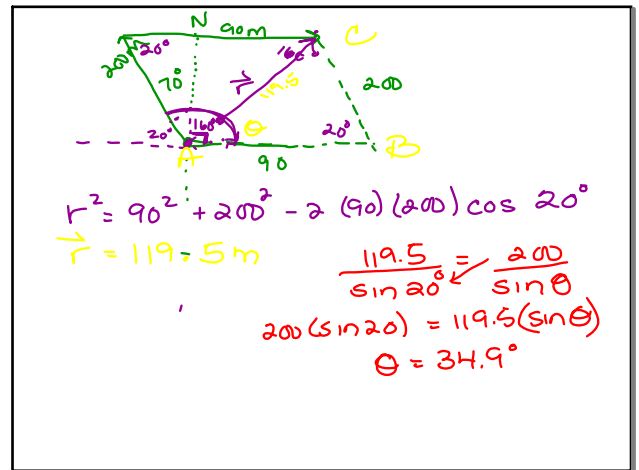 N 90m C
200m 20° 160°
70° r 119.5 200
20° 160° θ 20°
A 90 B
r² = 90² + 200² - 2 (90)(200) cos 20°
r = 119.5m
119.5 / sin 20° = 200 / sin θ
200 (sin 20) = 119.5 (sin θ)
θ = 34.9°